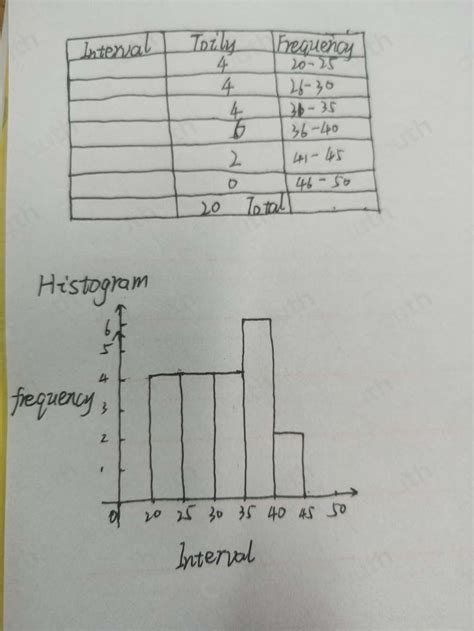 Interval Totily Frequency
4 20-25
4 26-30
4 31-35
6 36-40
2 41-45
0 46-50
20 Total
Histogram
6
5
4
frequency
3
2
1
0 20 25 30 35 40 45 50
Interval